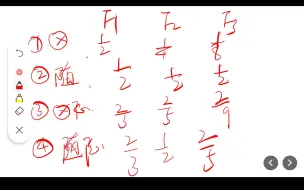 F1 F2 F3
① ⊗ 1/2 1/4 1/8
② 随 1/2 1/2 1/2
③ ⊗ 2/3 2/5 2/9
④ 随 2/3 1/2 2/5